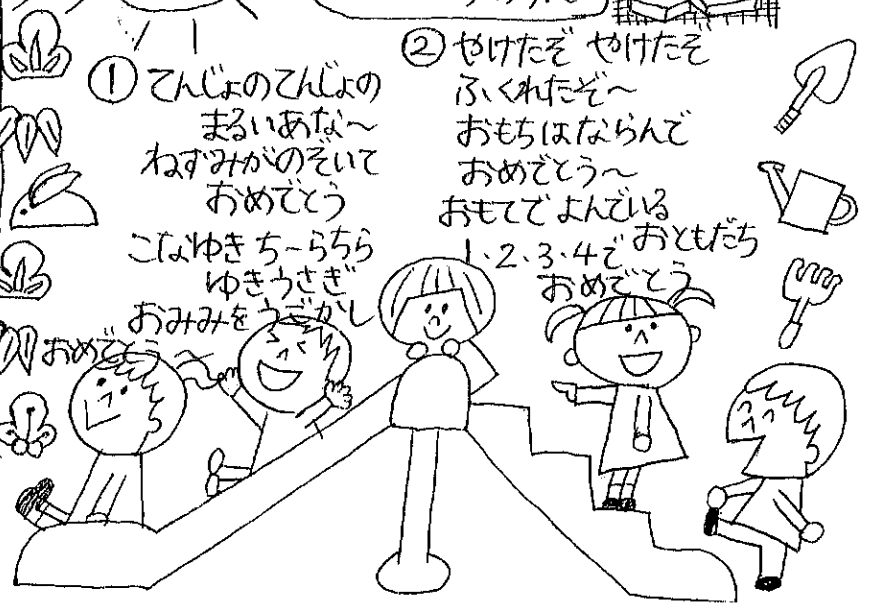 ① てんじょのてんじょの
まるいあな〜
ねずみがのぞいて
おめでとう
こなゆき ちーらちら
ゆきうさぎ
おみみをうごかし
おめでとう
② やけたぞ やけたぞ
ふくれたぞ〜
おもちはならんで
おめでとう〜
おもてで よんでいる
1・2・3・4で おともだち
おめでとう